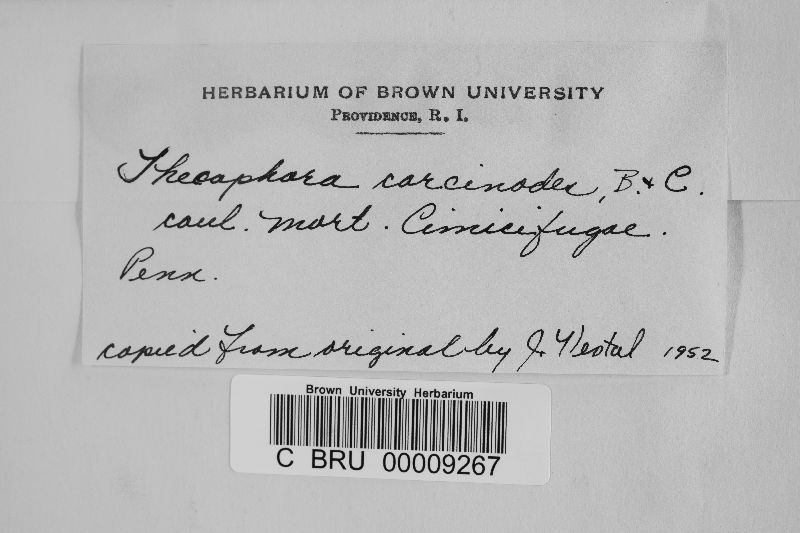 HERBARIUM OF BROWN UNIVERSITY
PROVIDENCE, R. I.
Thecaphora carcinodes, B. & C.
caul. mort. Cimicifugae.
Penn.
copied from original by J. Vestal 1952
Brown University Herbarium
C BRU 00009267